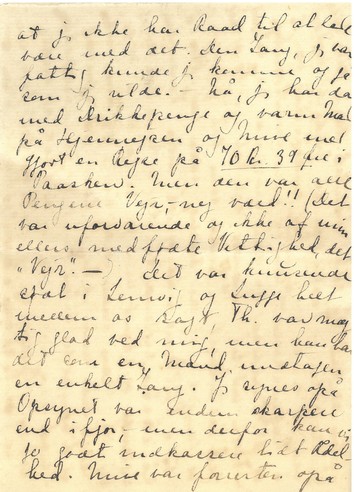 at jeg ikke har Raad til at lade
være med det. Den Gang, jeg var
fattig kunde jeg komme og gå
som jeg vilde. – Nå, jeg har da
med Drikkepenge og varm Mad
på Hjemrejsen og Mine med
gjort en Rejse på 70 Kr. 39 Øre i
Paasken. Men den var alle
Pengene Vejr, nej værd!! (Det
var uforvarende og ikke af min
ellers medfødte Vittighed, det
"Vejr" –) det var knusende
sødt i Lemvig og Lugge helt
mellem os sagt, Th. var mæg
tig glad ved mig, men han har
det som en Mand, undtagen
en enkelt Gang. Jeg synes også
Opsynet var endnu skarpere
end ifjor, – men derfor kan vi
jo godt indkassere lidt Adel
hed. Mine var forresten også